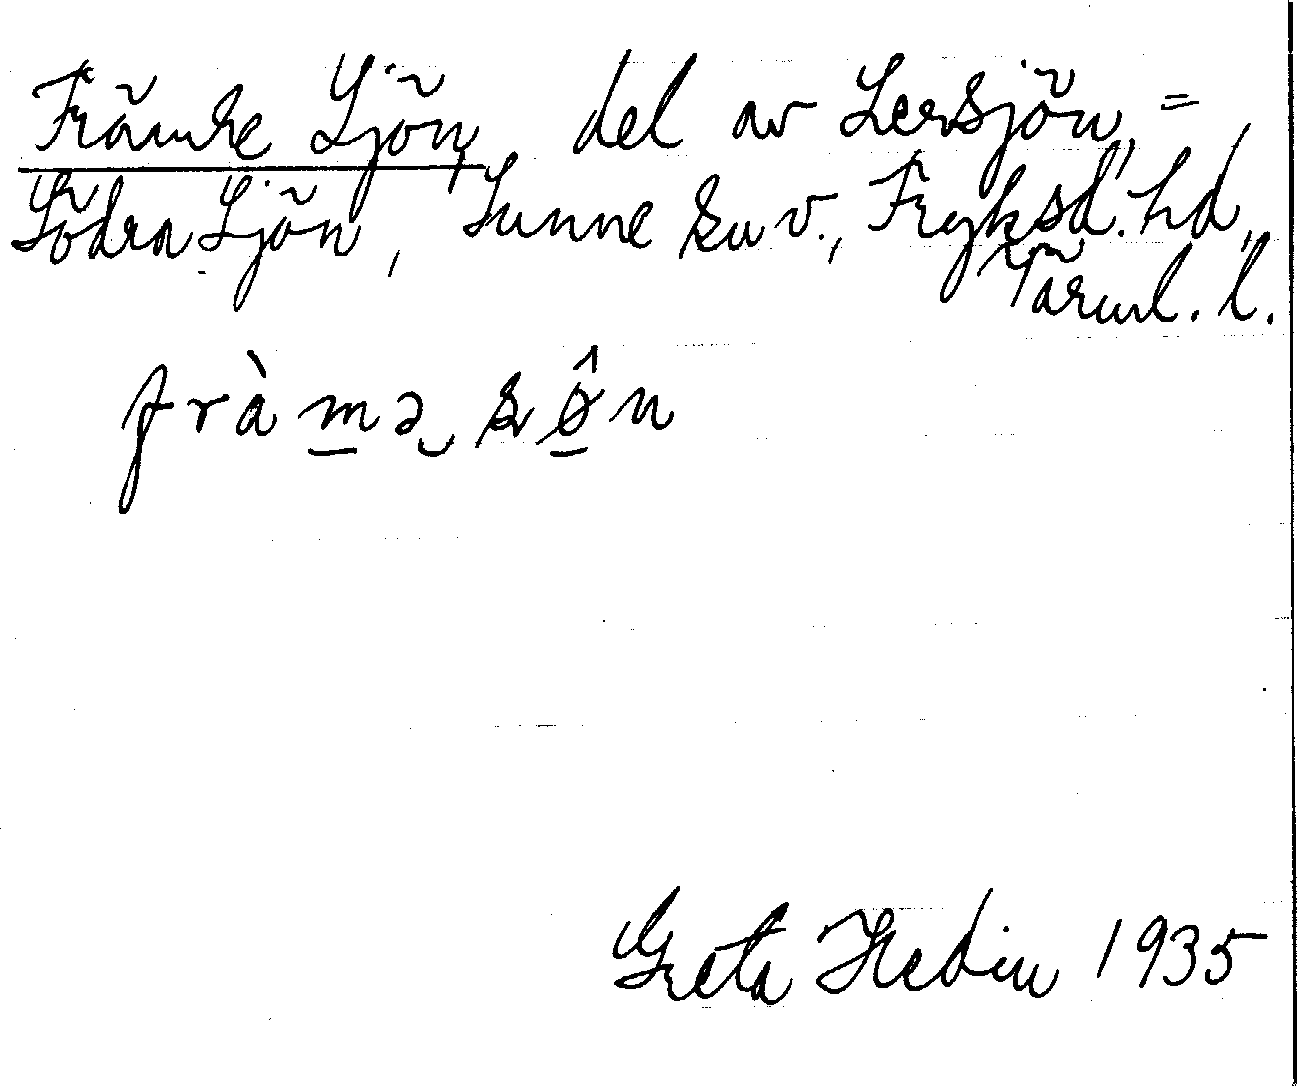 Främre Sjön, del av Lersjön, =
Södra Sjön, Sunne sn v., Fryksd. hd,
Värml. l.
fràmə ʂø̂n
Greta Hedin 1935